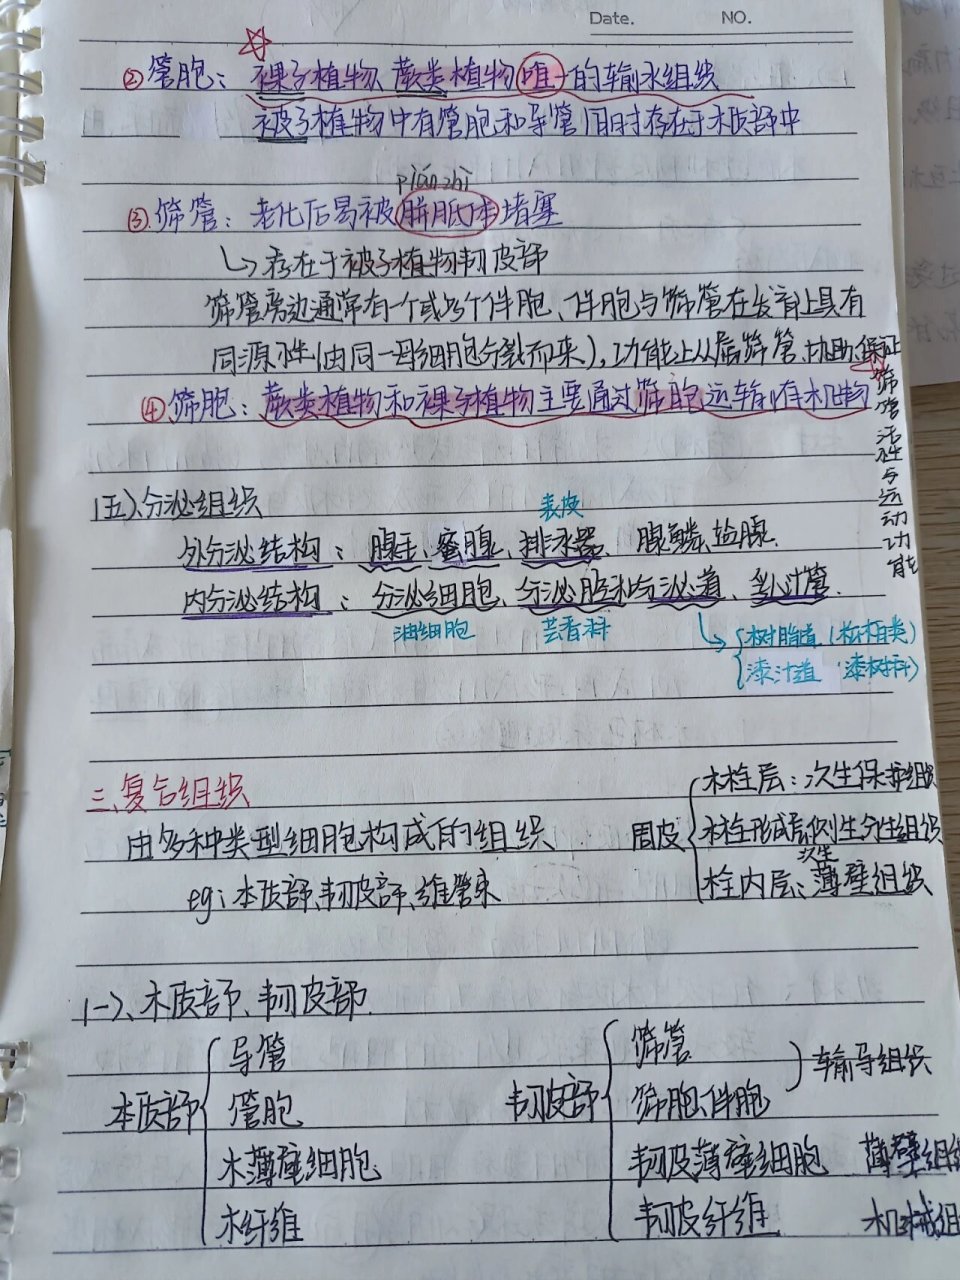 Date. NO.
②管胞：裸子植物、蕨类植物唯一的输水组织
被子植物中有管胞和导管同时存在于木质部中
pián zhī
③筛管：老化后易被胼胝体堵塞
↳存在于被子植物韧皮部
筛管旁边通常有一个或多个伴胞、伴胞与筛管在发育上具有
同源性(由同一母细胞分裂而来)，功能上从属筛管，协助、保证
筛管活性与运动功能
④筛胞：蕨类植物和裸子植物主要通过筛胞运输有机物
(五)、分泌组织
表皮
外分泌结构：腺毛、蜜腺、排水器、腺鳞、盐腺.
内分泌结构：分泌细胞、分泌腔和分泌道、乳汁管.
油细胞 芸香科
↳{树脂道 (松柏类)
漆汁道 (漆树科)
三、复合组织
由多种类型细胞构成的组织
eg：木质部、韧皮部、维管束
周皮{木栓层：次生保护组织
木栓形成层：侧生分生组织
次生
栓内层：薄壁组织
(一)、木质部、韧皮部.
木质部{导管
管胞
木薄壁细胞
木纤维
韧皮部{筛管
筛胞、伴胞
}输导组织
韧皮薄壁细胞 薄壁组织
韧皮纤维 机械组